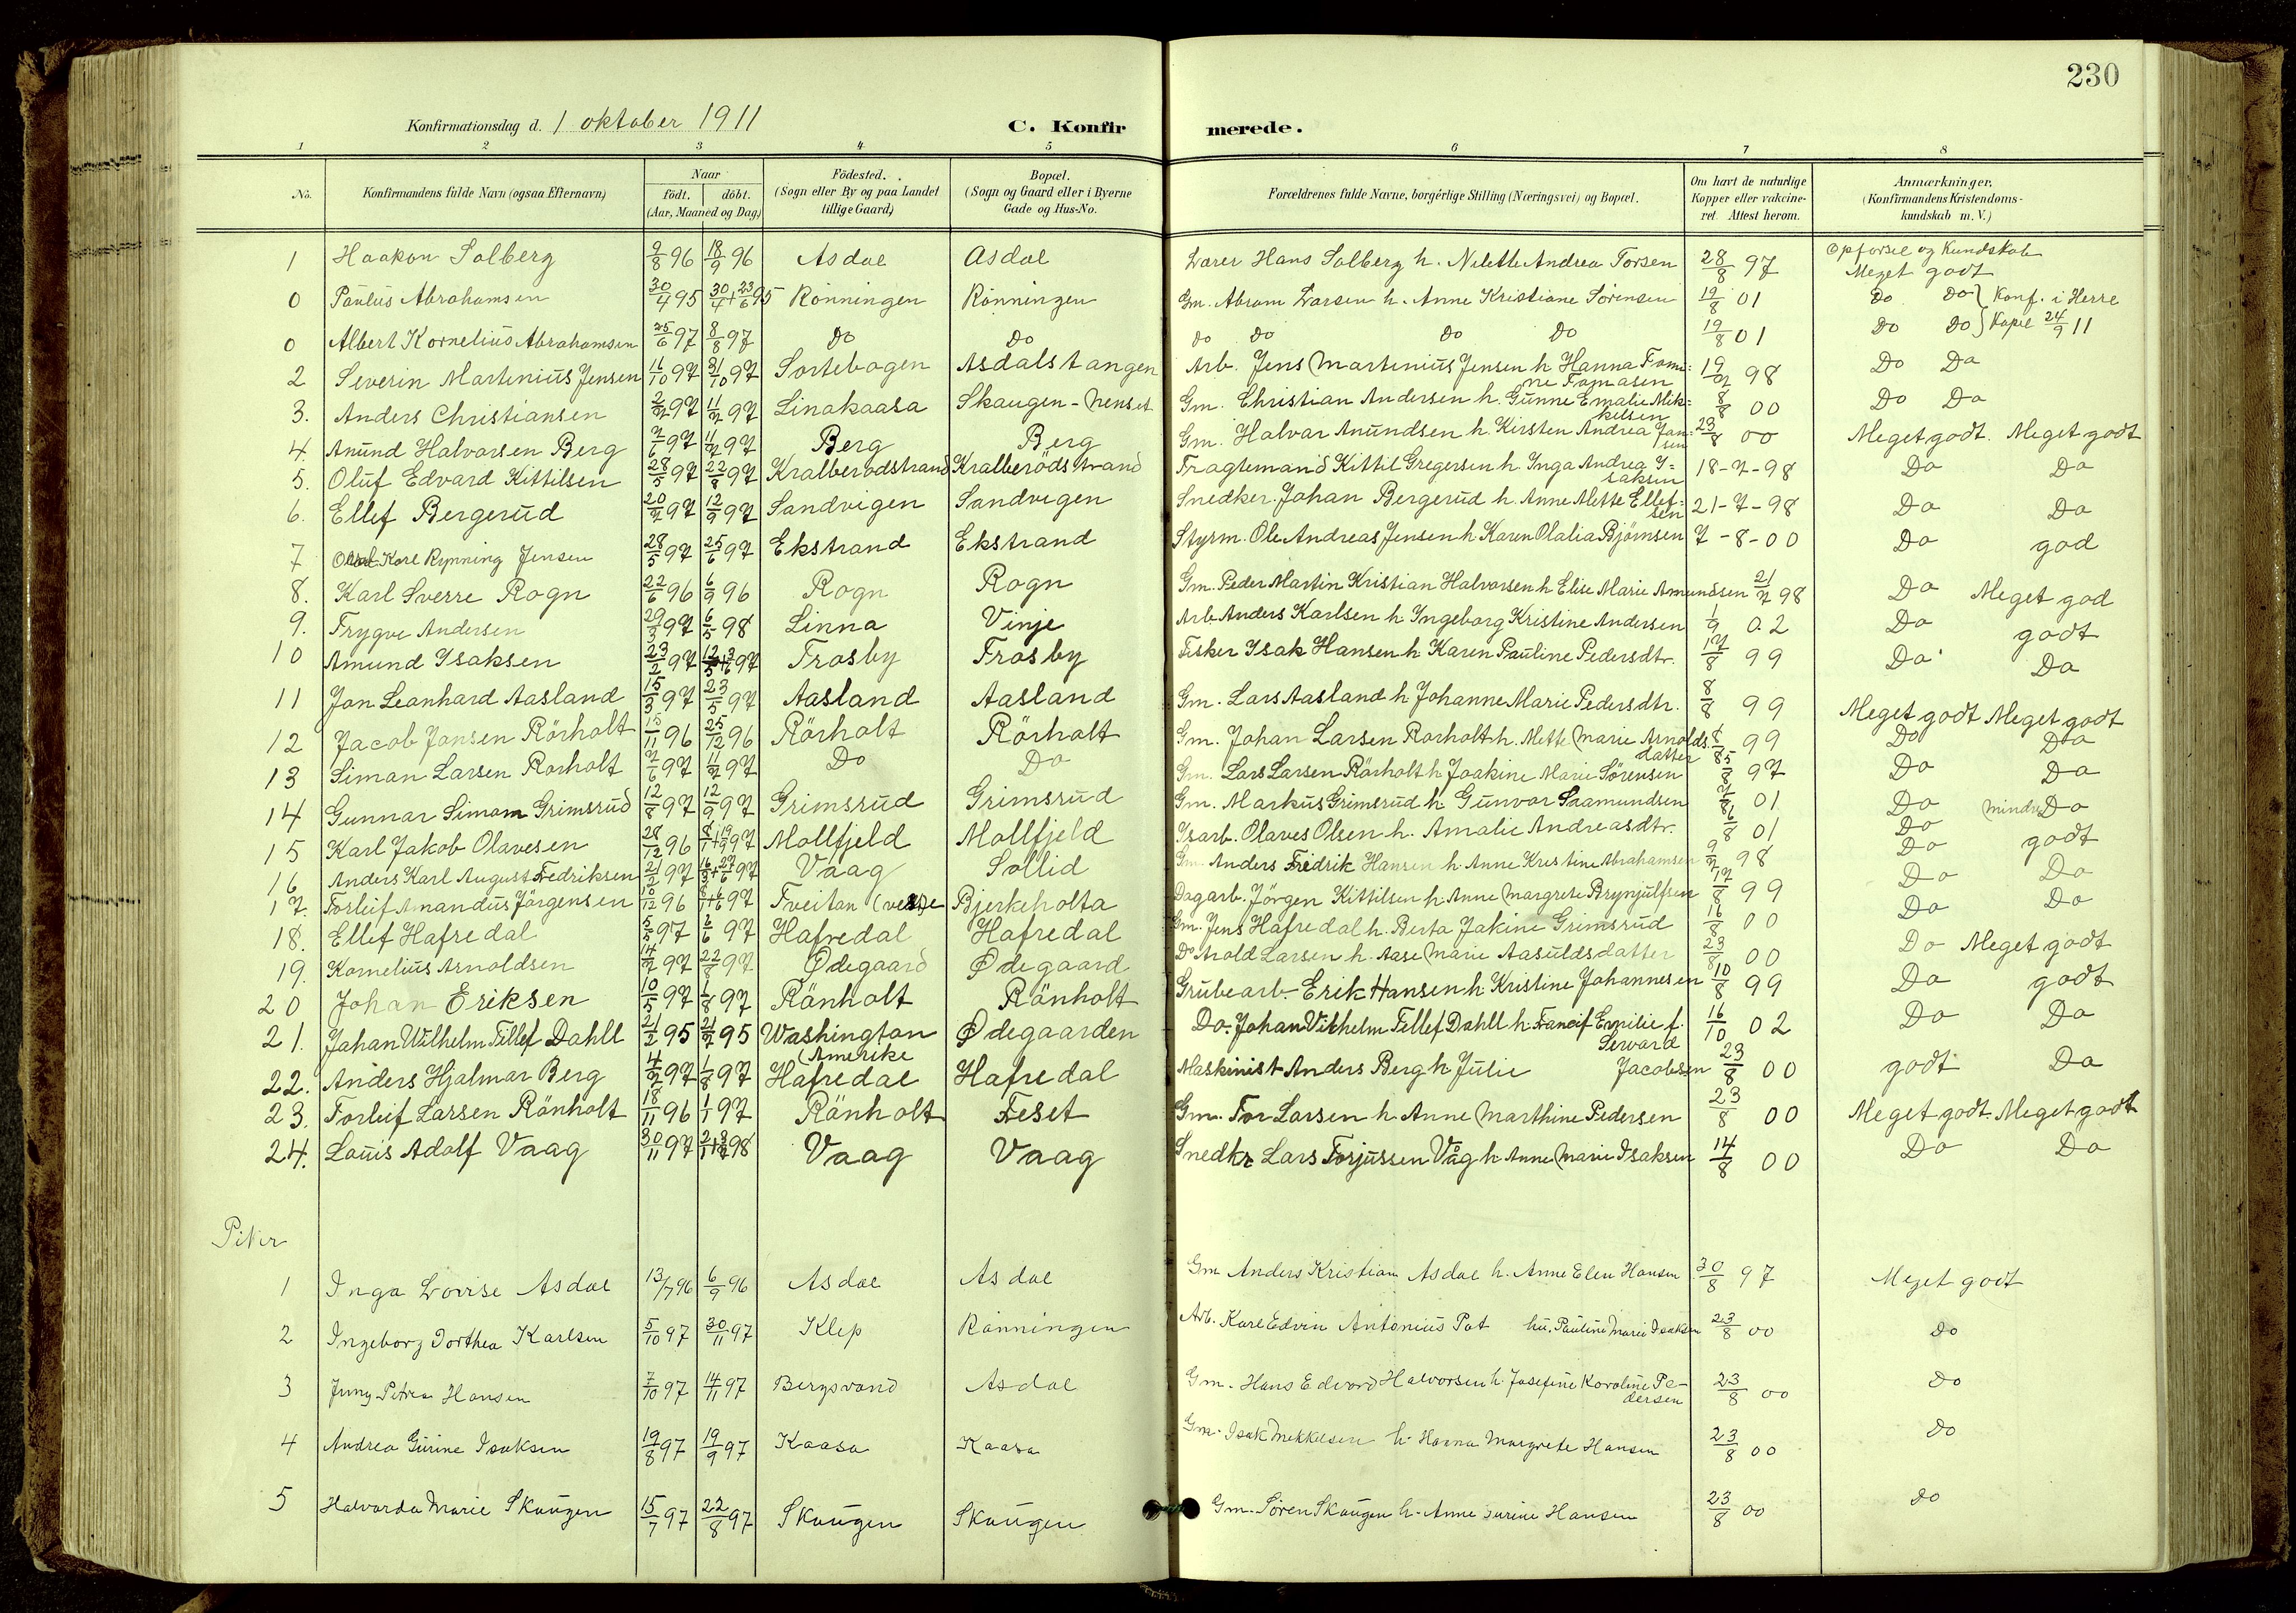 230
Konfirmationsdag d. 1 oktober 1911 C. Konfirmerede.
1 2 3 4 5 6 7 8
No. Konfirmandens fulde Navn (ogsaa Efternavn) Naar födt. döbt. (Aar, Maaned og Dag) Födested. (Sogn eller By og paa Landet tillige Gaard) Bopæl. (Sogn og Gaard eller i Byerne Gade og Hus-No. Forældrenes fulde Navne, borgerlige Stilling (Næringsvei) og Bopæl. Om havt de naturlige Kopper eller vakcineret. Attest herom. Anmærkninger. (Konfirmandens Kristendomskundskab m. V.)
Opförsel og Kundskab
1 Haakon Solberg 9/8 96 18/9 96 Asdal Asdal Lærer Hans Solberg h. Nilette Andrea Torsen 28/8 97 Meget godt
0 Paulus Abrahamsen 30/4 95 30/4+23/6 95 Rönningen Rönningen Gm. Abram Larsen h. Anne Kristiane Sørensen 19/8 01 Do Do } Konf. i Herre
0 Albert Kornelius Abrahamsen 25/6 97 8/8 97 Do Do Do Do Do Do 19/8 01 Do Do } Kapel 24/9 11
2 Severin Martenius Jensen 16/10 97 31/10 97 Sortebogen Asdalstangen Arb. Jens Martenius Jensen h Hanna Tomine Tomasen 19/7 98 Do Do
3. Anders Christiansen 2/7 97 11/7 97 Linakaasa Skaugen - Nenset Gm. Christian Andersen h. Gunne Emalie Mikkelsen 8/8 00 Do Do
4. Anund Halvorsen Berg 7/6 97 11/7 97 Berg Berg Gm. Halvor Anundsen h. Kirsten Andrea Jansen 23/8 00 Meget godt. Meget godt
5. Oluf Edvard Kittilsen 28/5 97 22/8 97 Kralberødstrand Kralberödstrand Fragtemand Kittil Gregersen h. Inga Andrea Isaksen 18-7-98 Do Do
6. Ellef Bergerud 20/7 97 12/9 97 Sandvigen Sandvigen Snedker. Johan Bergerud h. Anne Mette Ellefsen 21-7-98 Do Do
7 Karl Rynning Jensen 28/5 97 25/6 97 Ekstrand Ekstrand Styrm. Ole Andreas Jensen h Karen Olalia Bjørnsen 7-8-00 Do god
8. Karl Sverre Rogn 22/6 96 6/9 96 Rogn Rogn Gm. Peder Martin Kristian Halvorsen h Elise Marie Amundsen 21/7 98 Do Meget god
9. Trygve Andersen 29/3 97 6/5 98 Linna Vinje Arb. Anders Karlsen h Ingeborg Kristine Andersen 1/9 02 Do godt
10 Amund Isaksen 23/2 97 97 Trosby Trosby Fisker Isak Hansen h Karen Pauline Pedersdtr. 17/8 99 Do Do
11 Jon Leonhard Aasland 15/3 97 23/5 97 Aasland Aasland Gm. Lars Aasland h. Johanne Marie Pedersdtr. 8/8 99 Meget godt Meget godt
12 Jacob Jansen Rörholt 15/11 96 25/12 96 Rörholt Rörholt Gm. Johan Larsen Rorholt h. Mette Marie Arnoldsdatter 8/8 99 Do Do
13 Simon Larsen Rorholt 7/6 97 11/7 97 Do Do Gm. Lars Larsen Rörholt h Joakine Marie Sørensen 5/8 97 Do Do
14 Gunnar Simon Grimsrud 12/8 97 12/9 97 Grimsrud Grimsrud Gm. Markus Grimsrud h. Gunvor Saamundsen 01 Do mindre Do
15 Karl Jakob Olavesen 28/12 96 97 Mollfjeld Mollfjeld Isarb. Olaves Olsen h. Amalie Andreasdtr. 16/8 01 Do godt
16 Anders Karl August Fedriksen 21/2 97 97 Vaag Sollid Gm. Anders Fredrik Hansen h. Anne Kristine Abrahamsen 9/7 98 Do Do
17. Torleif Amandus Jörgensen 10/12 96 97 Tveitan Bjerkeholta Dagarb. Jörgen Kittilsen h. Anne Margrete Brynjulfsen 17/8 99 Do Do
18. Ellef Hafredal 5/5 97 6/6 97 Hafredal Hafredal Gm. Jens Hafredal h. Berta Jakine Grimsrud 16/8 00 Do Do
19. Kornelius Arnoldsen 14/7 97 22/8 97 Ødegaard Ødegaard Do Arold Larsen h. Aase Marie Aasuldsdatter 23/8 00 Do Meget godt
20 Johan Eriksen 10/5 97 1/8 97 Rönholt Rönholt Grubearb. Erik Hansen h Kristine Johannesen 10/8 99 Do godt
21. Johan Wilhelm Tillef Dahll 21/2 95 21/7 95 Washington (Amerike Ødegaarden Do. Johan Vilhelm Tellef Dahll h. Emilie f. Servard 16/10 02 Do Do
22. Anders Hjalmar Berg 4/7 97 1/8 97 Hafredal Hafredal Maskinist Anders Berg h Julie Jacobsen 23/8 00 godt Do
23. Torleif Larsen Rönholt 18/11 96 1/1 97 Rönholt Feset Gm. Tor Larsen h. Anne Marthine Pedersen 23/8 00 Meget godt. Meget godt
24. Louis Adolf Vaag 30/11 97 98 Vaag Vaag Snedkr Lars Torjussen Våg h Anne Marie Isaksen 14/8 00 Do Do
Piker
1 Inga Lovise Asdal 13/7 96 6/9 96 Asdal Asdal Gm Anders Kristian Asdal h. Anne Elen Hansen 30/8 97 Meget godt
2 Ingeborg Dorthea Karlsen 5/10 97 30/11 97 Klep Rönningen Arb. Karl Edvin Antonius Pot hu. Pauline Marie Isaksen 23/8 00 Do
3 Jinny Petrea Hansen 7/10 97 14/11 97 Bergsvand Asdal Gm. Hans Edvard Halvorsen h. Josefine Karoline Pedersen 23/8 00 Do
4 Andrea Gurine Isaksen 19/8 97 19/9 97 Kaasa Kaasa Gm. Isak Mekkelsen h. Hanna Margrete Hansen 23/8 00 Do
5 Halvorda Marie Skaugen 15/7 97 22/8 97 Skaugen Skaugen Gm. Søren Skaugen h. Anne Surine Hansen 23/8 00 Do